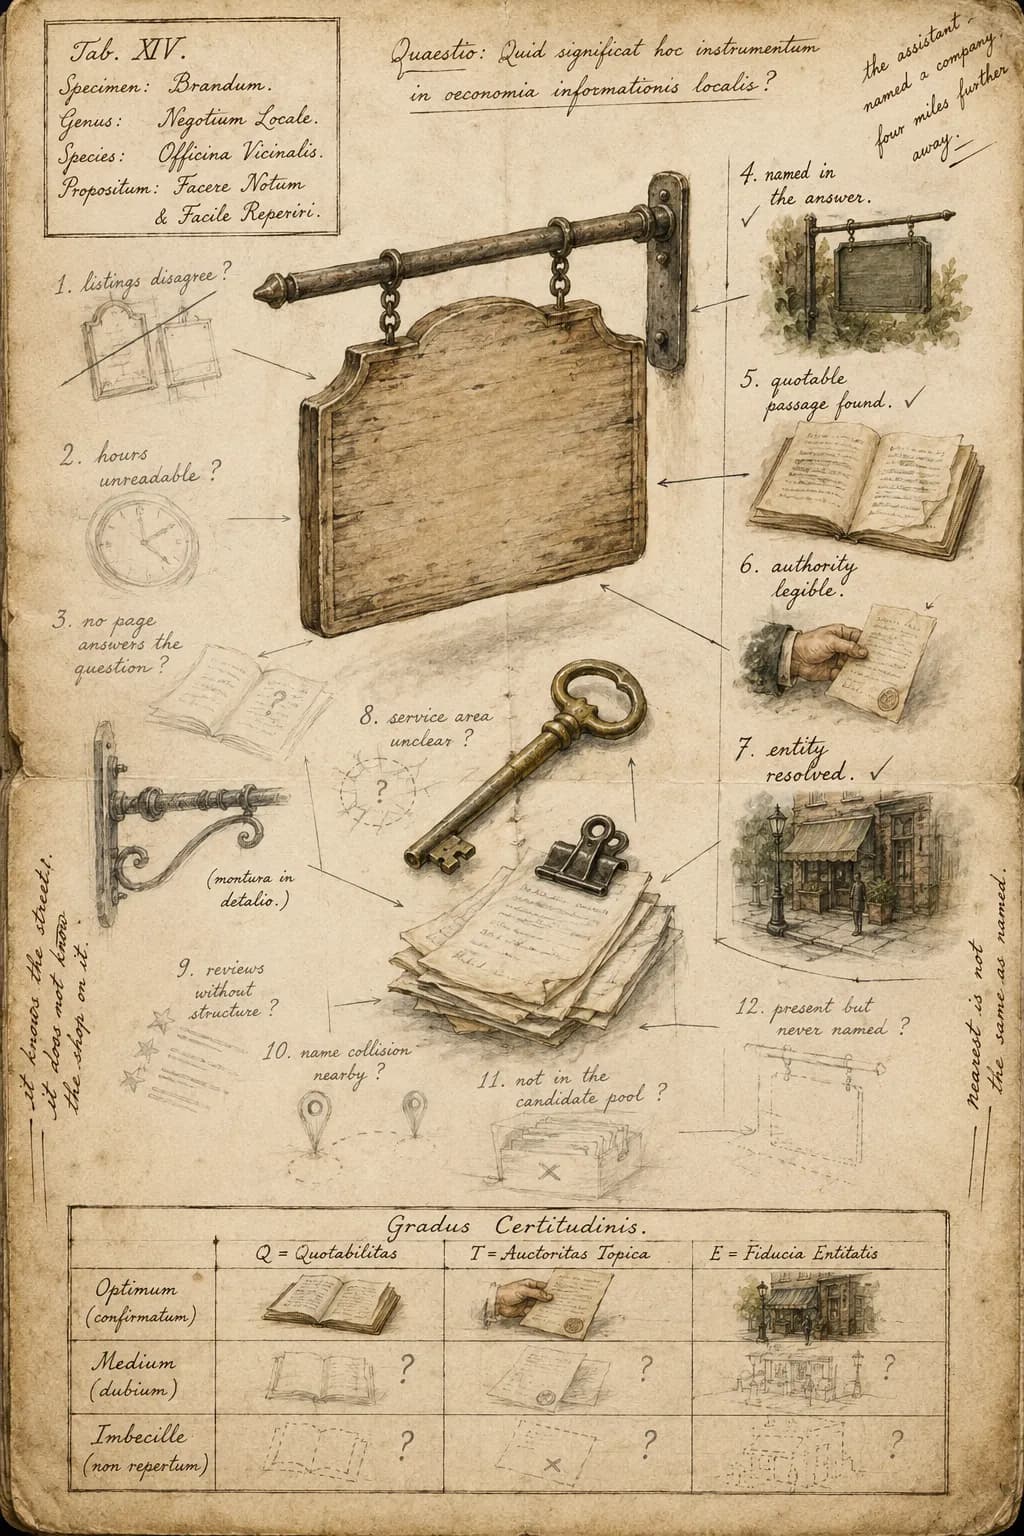 Tab. XIV.
Specimen: Brandum.
Genus: Negotium Locale.
Species: Officina Vicinalis.
Propositum: Facere Notum
& Facile Reperiri.
Quaestio: Quid significat hoc instrumentum
in oeconomia informationis localis?
the assistant
named a company
four miles further
away.
1. listings disagree?
2. hours
unreadable?
3. no page
answers the
question?
?
4. named in
the answer.
✓
5. quotable
passage found. ✓
6. authority
legible.
7. entity
resolved. ✓
8. service area
unclear?
?
(montura in
detalio.)
it knows the street.
it does not know
the shop on it.
9. reviews
without
structure?
10. name collision
nearby?
11. not in the
candidate pool?
12. present but
never named?
nearest is not
the same as named.
Gradus Certitudinis.
Q = Quotabilitas
T = Auctoritas Topica
E = Fiducia Entitatis
Optimum
(confirmatum)
Medium
(dubium)
?
?
?
Imbecille
(non repertum)
?
?
?